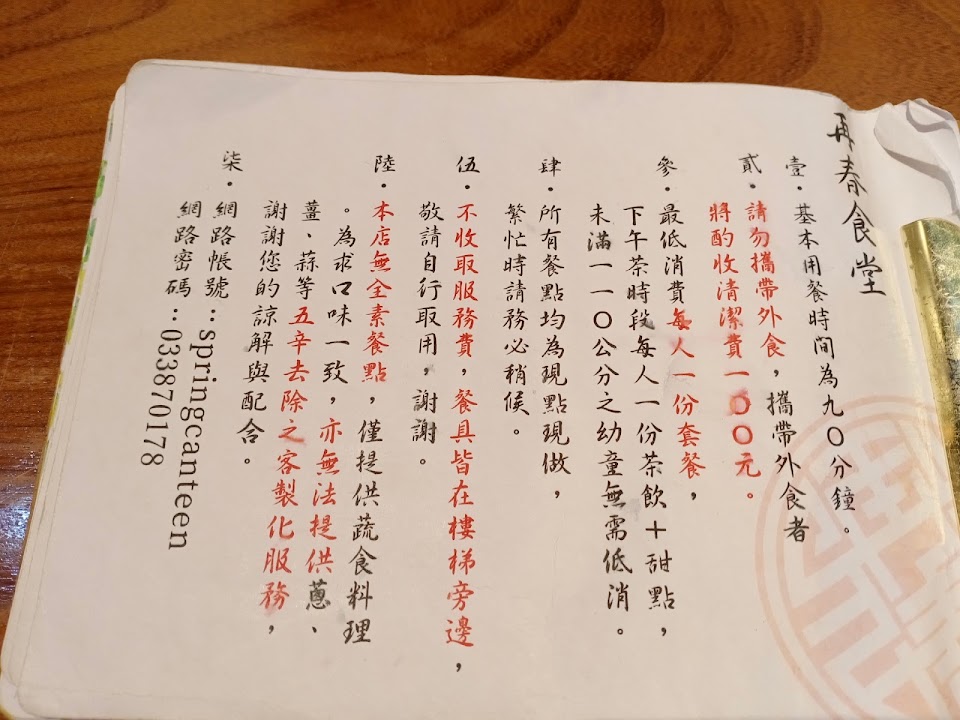 再春食堂
壹．基本用餐時間為九〇分鐘。
貳．請勿攜帶外食，攜帶外食者
將酌收清潔費一〇〇元。
參．最低消費每人一份套餐，
下午茶時段每人一份茶飲＋甜點，
未滿一一〇公分之幼童無需低消。
肆．所有餐點均為現點現做，
繁忙時請務必稍候。
伍．不收取服務費，餐具皆在樓梯旁邊，
敬請自行取用，謝謝。
陸．本店無全素餐點，僅提供蔬食料理
。為求口味一致，亦無法提供蔥、
薑、蒜等五辛去除之客製化服務，
謝謝您的諒解與配合。
柒．網路帳號：springcanteen
網路密碼：033870178